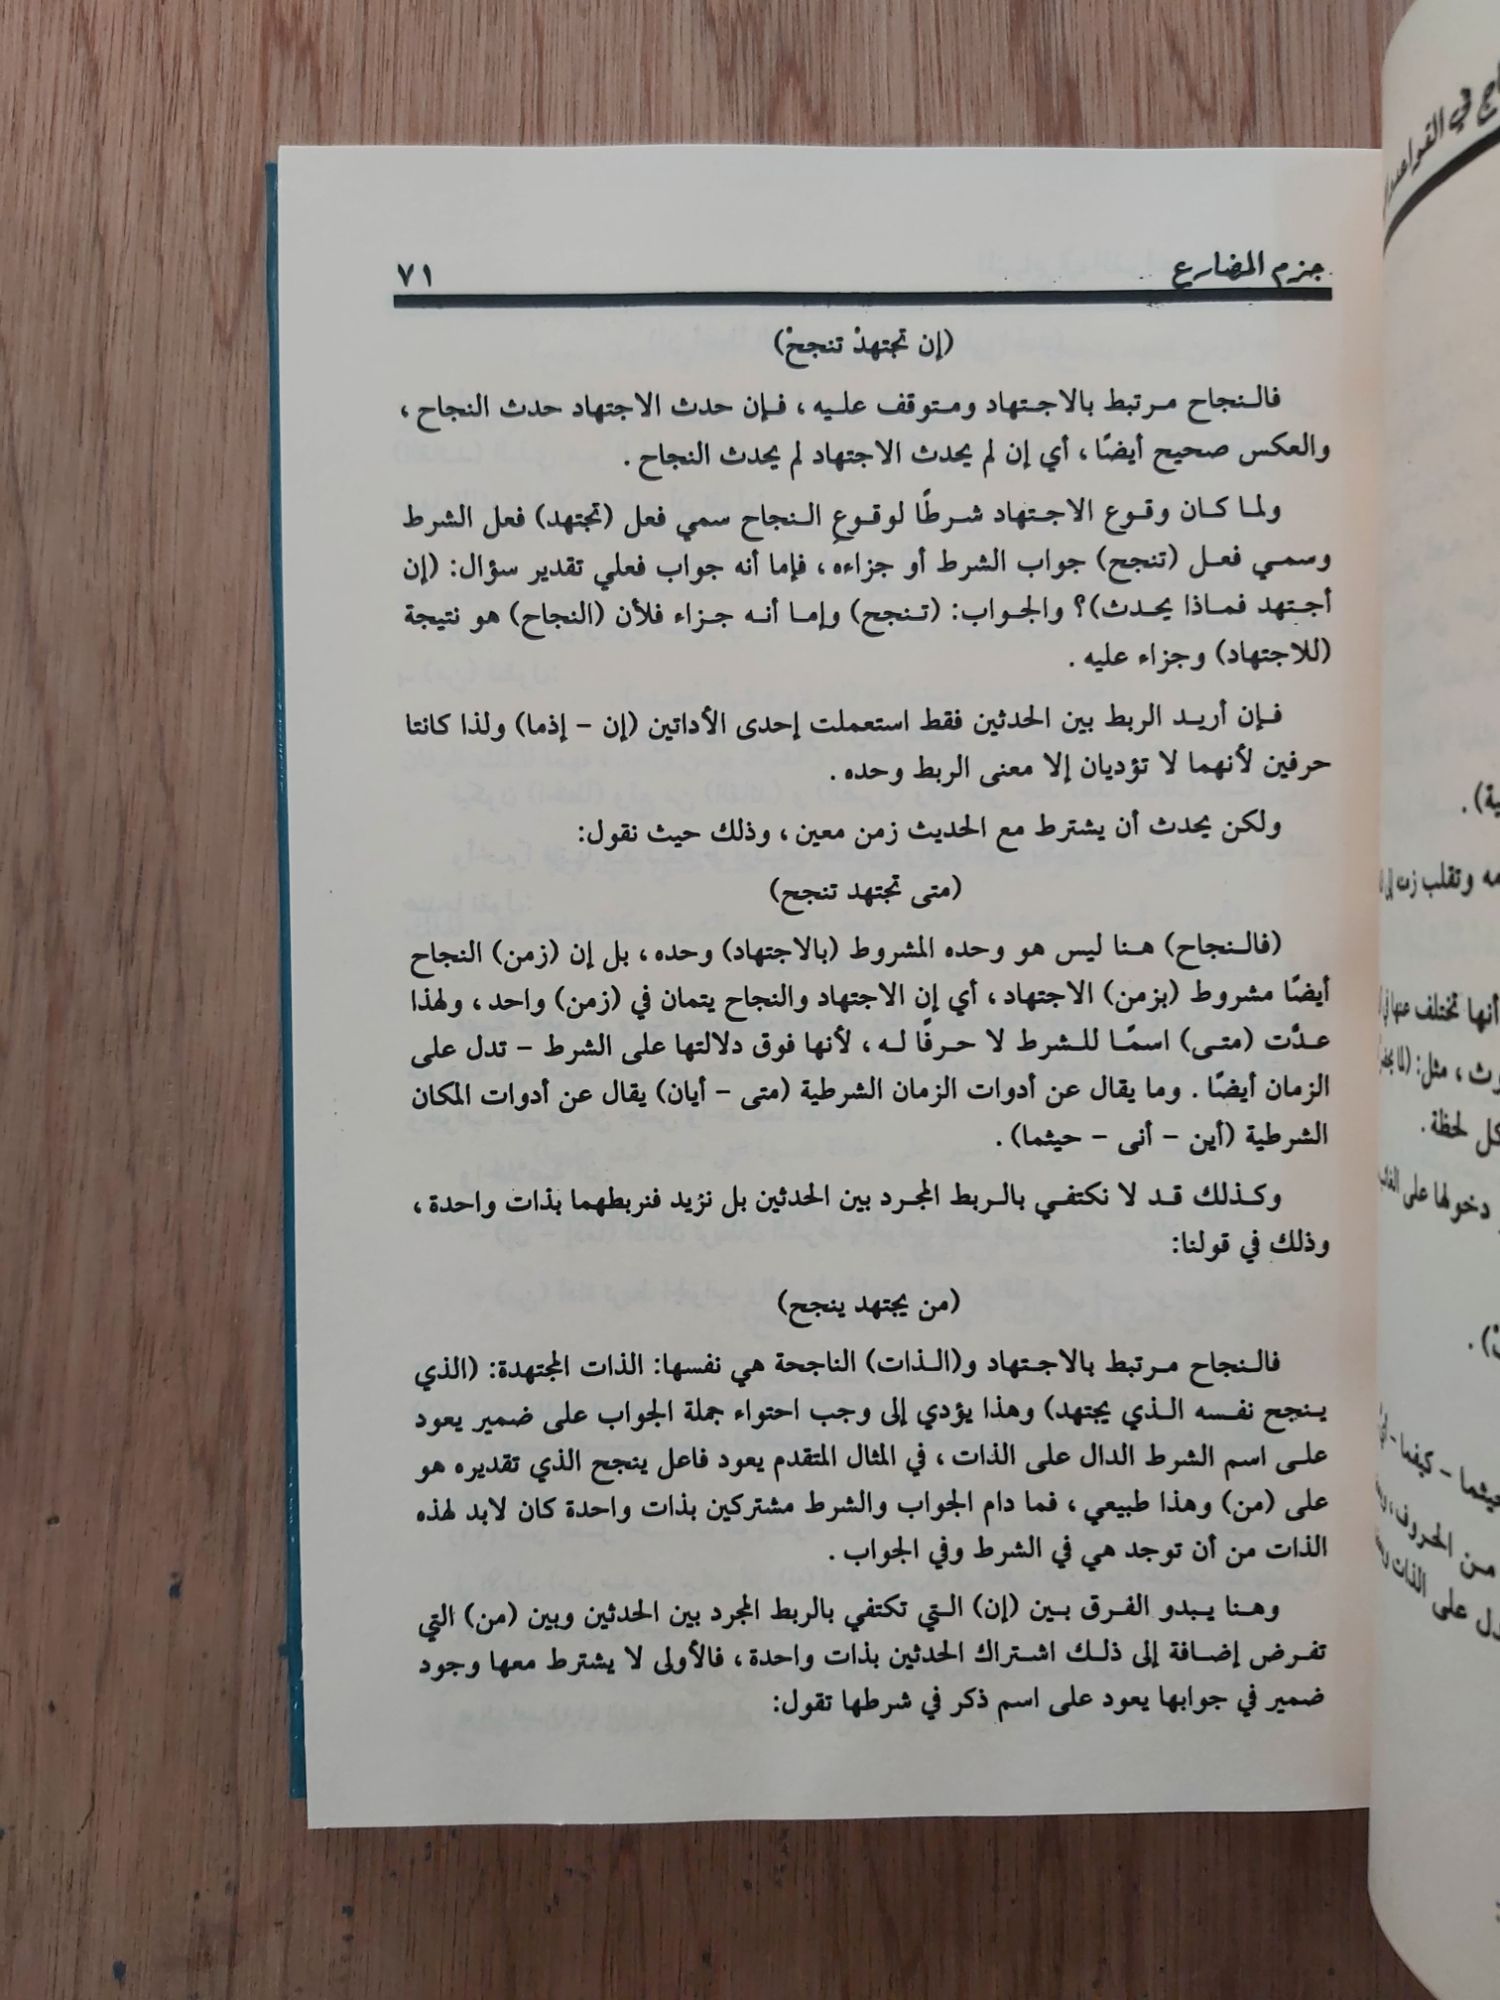 جزم المضارع ٧١
(إن تجتهدْ تنجحْ)
فالنجاح مرتبط بالاجتهاد ومتوقف عليه ، فإن حدث الاجتهاد حدث النجاح ،
والعكس صحيح أيضًا ، أي إن لم يحدث الاجتهاد لم يحدث النجاح .
ولما كان وقوع الاجتهاد شرطًا لوقوع النجاح سمي فعل (تجتهد) فعل الشرط
وسمي فعل (تنجح) جواب الشرط أو جزاءه ، فإما أنه جواب فعلي تقدير سؤال: (إن
أجتهد فماذا يحدث)؟ والجواب: (تنجح) وإما أنه جزاء فلأن (النجاح) هو نتيجة
(للاجتهاد) وجزاء عليه .
فإن أريد الربط بين الحدثين فقط استعملت إحدى الأداتين (إن – إذما) ولذا كانتا
حرفين لأنهما لا تؤديان إلا معنى الربط وحده .
ولكن يحدث أن يشترط مع الحديث زمن معين ، وذلك حيث نقول:
(متى تجتهد تنجح)
(فالنجاح) هنا ليس هو وحده المشروط (بالاجتهاد) وحده ، بل إن (زمن) النجاح
أيضًا مشروط (بزمن) الاجتهاد ، أي إن الاجتهاد والنجاح يتمان في (زمن) واحد ، ولهذا
عدَّت (متى) اسمًا للشرط لا حرفًا له ، لأنها فوق دلالتها على الشرط – تدل على
الزمان أيضًا . وما يقال عن أدوات الزمان الشرطية (متى – أيان) يقال عن أدوات المكان
الشرطية (أين – أنى – حيثما) .
وكذلك قد لا نكتفي بالربط المجرد بين الحدثين بل نزيد فنربطهما بذات واحدة ،
وذلك في قولنا:
(من يجتهد ينجح)
فالنجاح مرتبط بالاجتهاد و(الذات) الناجحة هي نفسها: الذات المجتهدة: (الذي
ينجح نفسه الذي يجتهد) وهذا يؤدي إلى وجب احتواء جملة الجواب على ضمير يعود
على اسم الشرط الدال على الذات ، في المثال المتقدم يعود فاعل ينجح الذي تقديره هو
على (من) وهذا طبيعي ، فما دام الجواب والشرط مشتركين بذات واحدة كان لابد لهذه
الذات من أن توجد هي في الشرط وفي الجواب .
وهنا يبدو الفرق بين (إن) التي تكتفي بالربط المجرد بين الحدثين وبين (من) التي
تفرض إضافة إلى ذلك اشتراك الحدثين بذات واحدة ، فالأولى لا يشترط معها وجود
ضمير في جوابها يعود على اسم ذكر في شرطها تقول:
في القواعد
وتقلب
أنها تختلف عنها
مثل:
كل لحظة .
دخولها على
حيثما – كيفما
من الحروف
على الذات